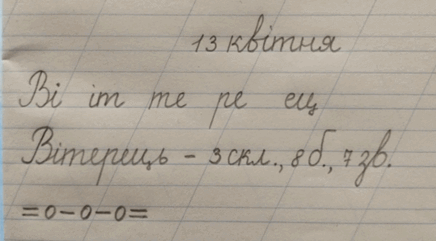 13 квітня
Ві іт те ре ец
Вітерець - 3 скл., 8 б., 7 зв.
=о-о-о=